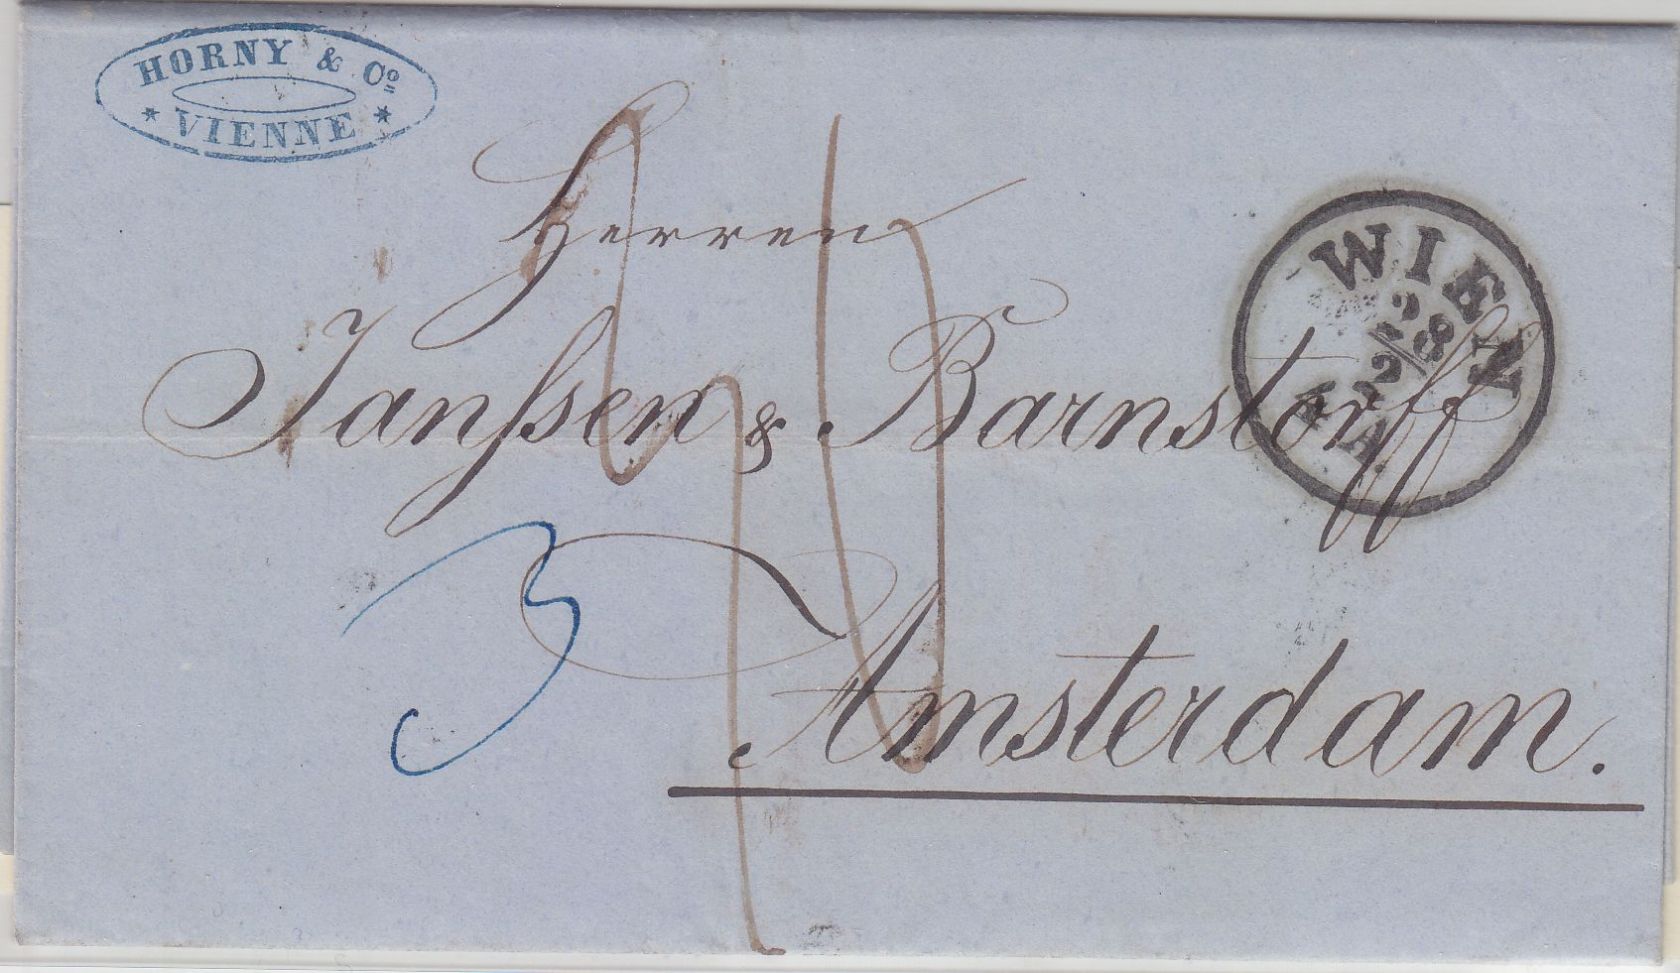 HORNY & Co
* VIENNE *
Herren
Janſsen & Barnstorff
Amsterdam.
WIEN
28
2
3